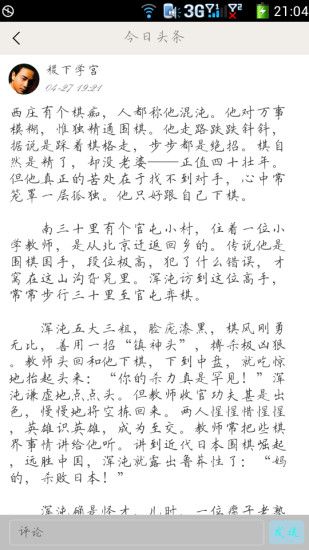 3G
21:04
今日头条
稷下学宫
04-27 19:21
西庄有个棋痴，人都称他混沌。他对万事
模糊，惟独精通围棋。他走路跌跌斜斜，
据说是踩着棋格走，步步都是绝招。棋自
然是精了，却没老婆——正值四十壮年。
但他真正的苦处在于找不到对手，心中常
笼罩一层孤独。他只好跟自己下棋。
南三十里有个官屯小村，住着一位小
学教师，是从北京迁返回乡的。传说他是
围棋国手，段位极高，犯了什么错误，才
窝在这山沟旮旯里。浑沌访到这位高手，
常常步行三十里至官屯弈棋。
浑沌五大三粗，脸庞漆黑，棋风刚勇
无比，善用一招“镇神头”，搏杀极凶狠。
教师头回和他下棋，下到中盘，就吃惊
地抬起头来：“你的杀力真是罕见！”浑
沌谦虚地点点头。但教师收官功夫甚是出
色，慢慢地将空拣回来。两人惺惺惜惺惺，
英雄识英雄，成为至交。教师常把些棋
界事情讲给他听。讲到近代日本围棋崛起，
远胜中国，浑沌就露出鲁莽性子：“妈
的，杀败日本！”
浑沌确是怪才。儿时，一位瘸子老塾
评论
发送